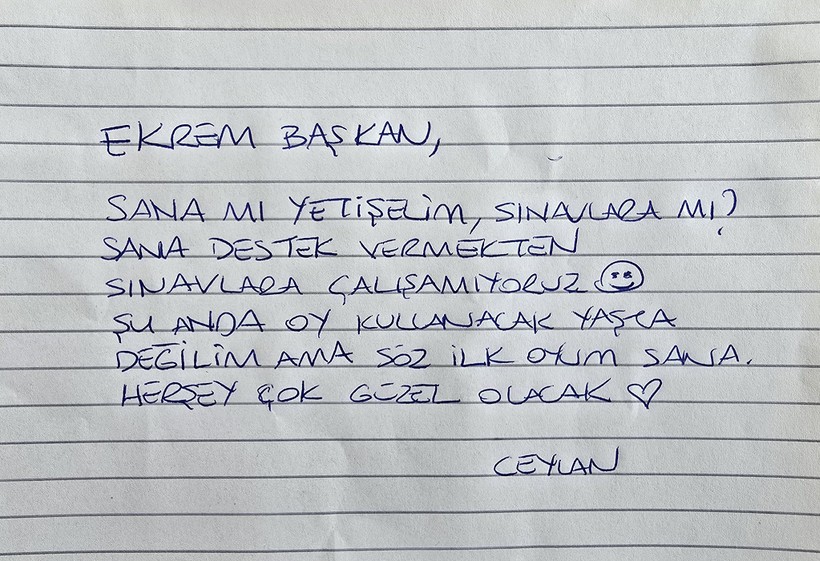 EKREM BAŞKAN,
SANA MI YETİŞELİM, SINAVLARA MI?
SANA DESTEK VERMEKTEN
SINAVLARA ÇALIŞAMIYORUZ
ŞU ANDA OY KULLANACAK YAŞTA
DEĞİLİM AMA SÖZ İLK OYUM SANA.
HERŞEY ÇOK GÜZEL OLACAK ♡
CEYLAN